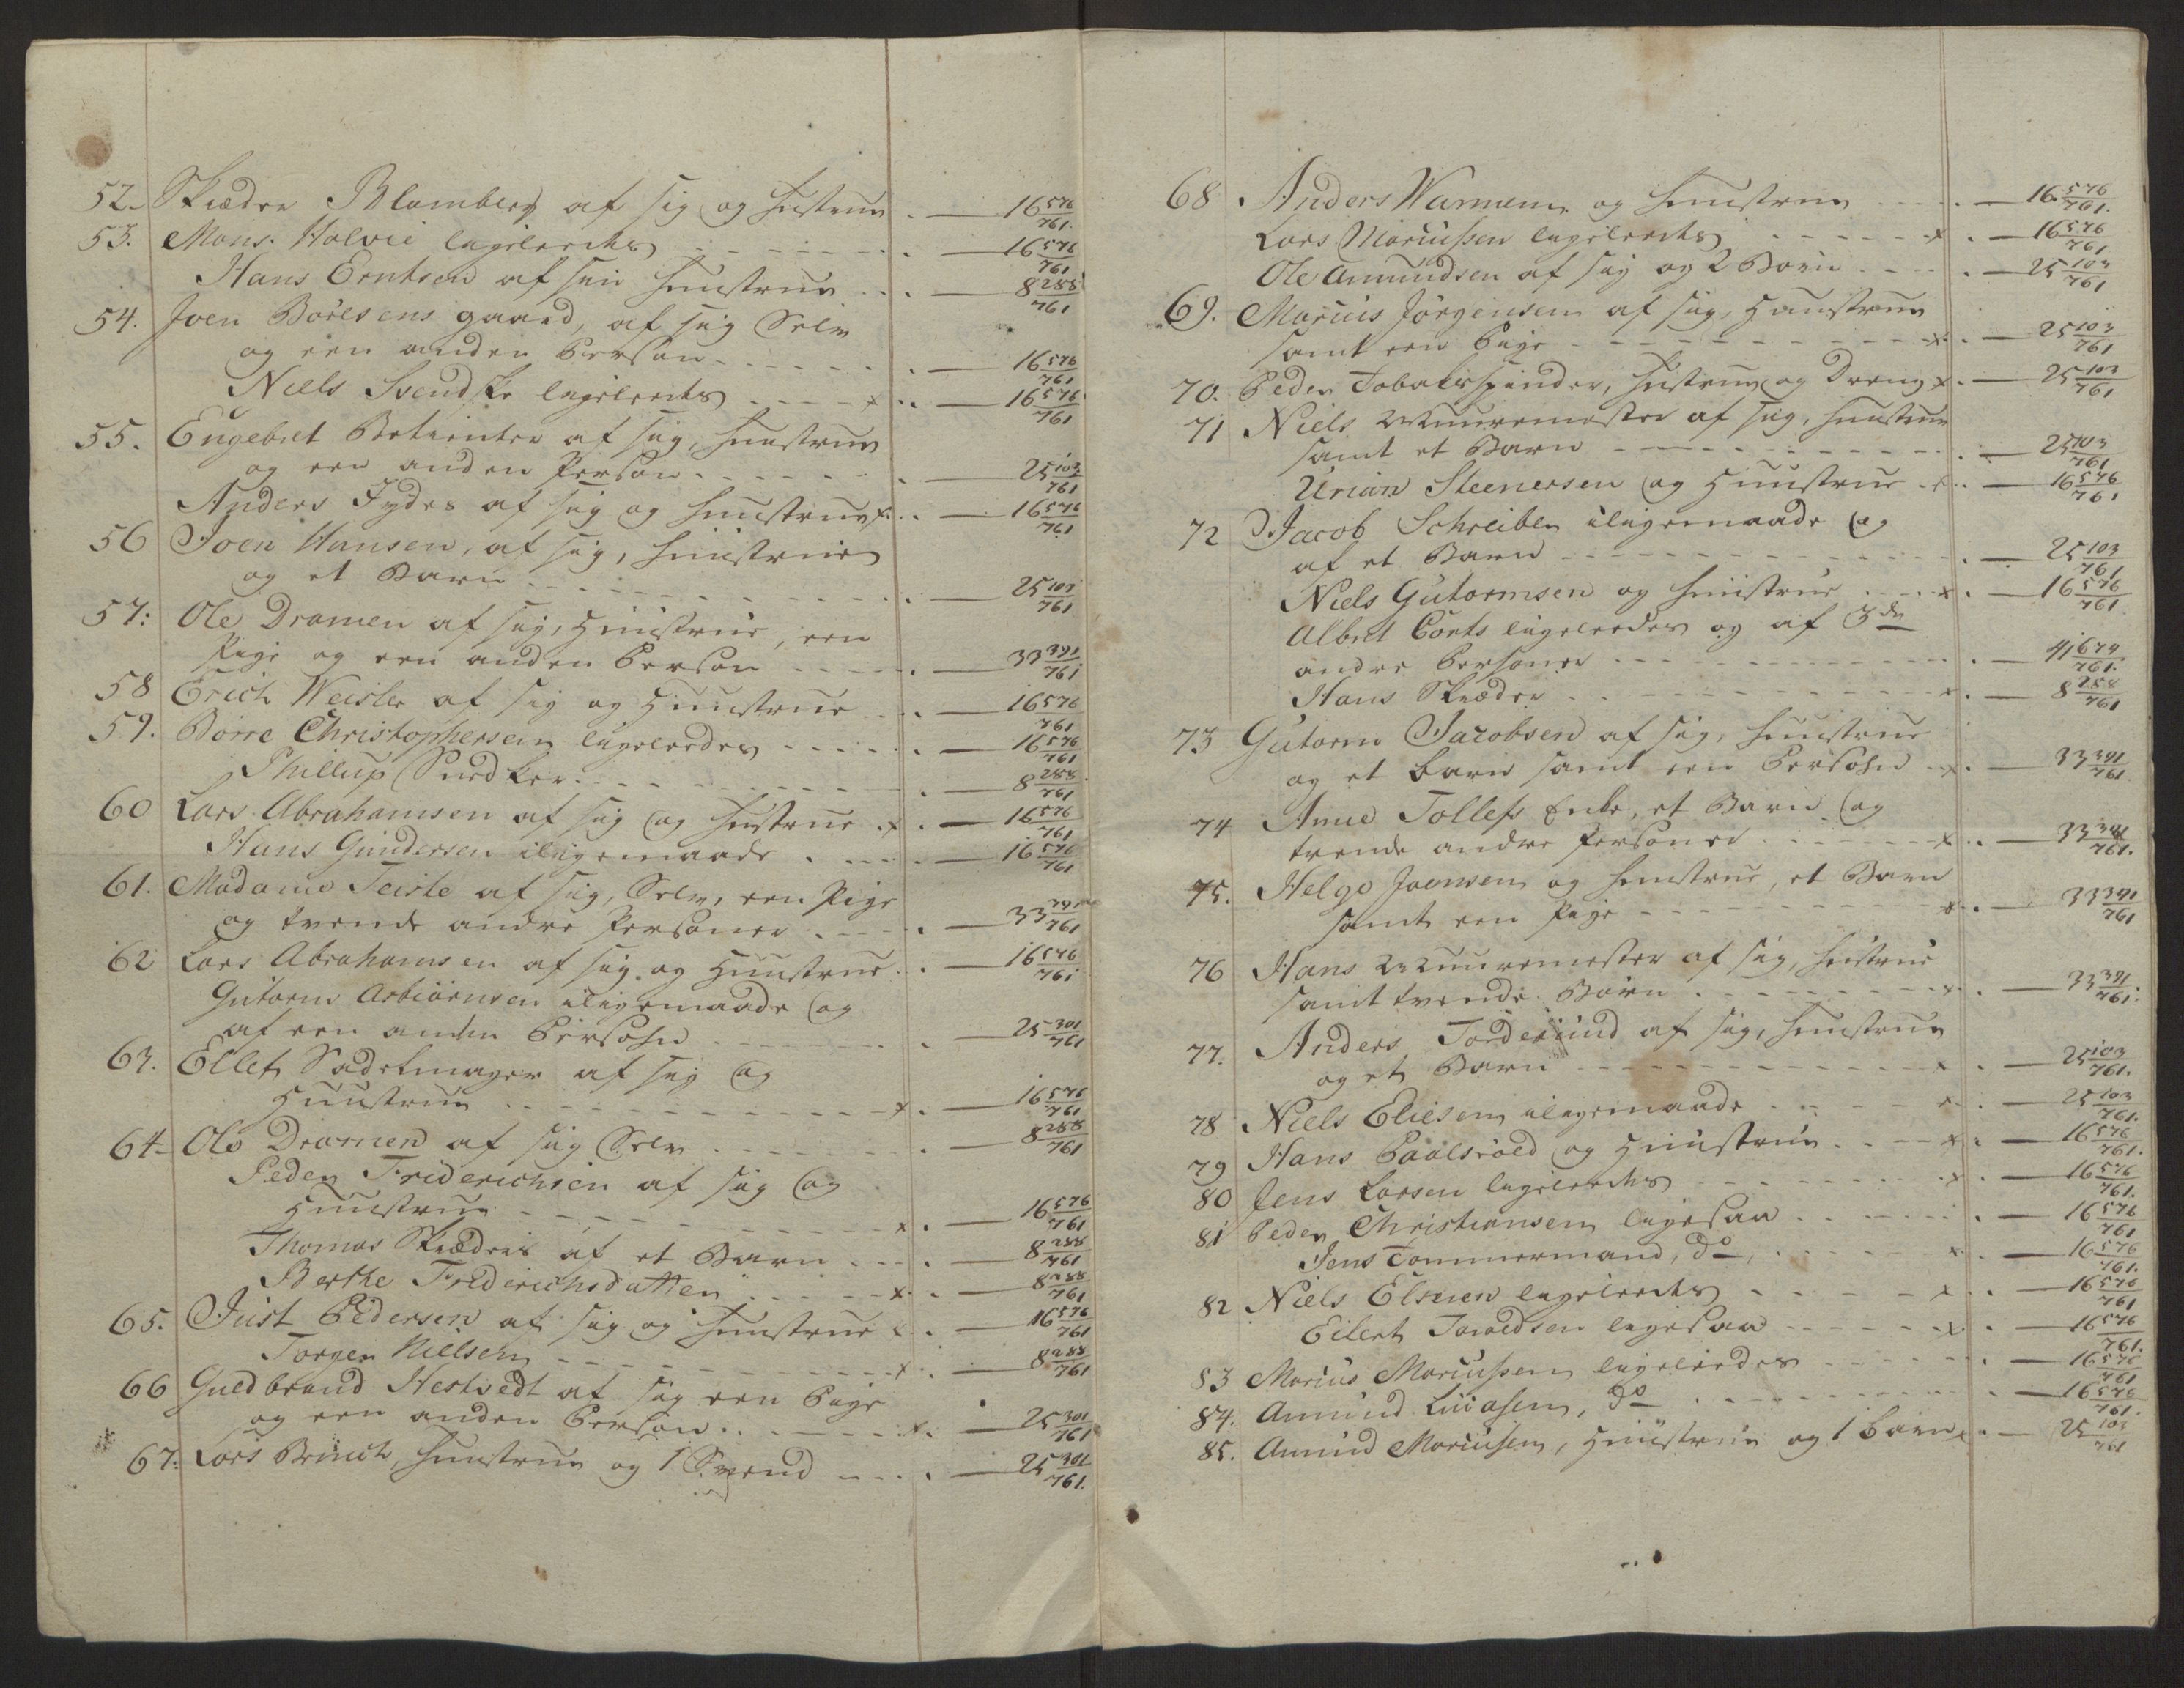 52. Skræder Blomberg af sig og Hustrue . — 16 576/761.
53. Mons. Holvie ligeleedes . — 16 576/761
Hans Erntsen af sin Huustrue . — 8 288/761
54. Joen Böresens gaard, af sig Selv
og een anden Person . — 16 576/761
Niels Svendske ligeleedes x . — 16 576/761
55. Engebret Betienter af sig, Huustrue
og een anden Person . — 25 103/761
Anders Jydes af sig og Huustrue x . — 16 576/761
56 Joen Hansen, af sig, Huustrue
og et Barn . — 25 103/761
57: Ole Dramen af sig, Huustrue, een
Pige og een anden Person . — 33 391/761
58 Erich Weisler af sig og Huustrue . — 16 576/761
59. Börre Christophersen ligeleedes . — 16 576/761
Phillup Snedker . — 8 288/761
60 Lars Abrahamsen af sig og Hustrue x . — 16 576/761
Hans Gundersen iligemaade . — 16 576/761
61. Madame Teiste af sig, Selv, een Pige
og tvende andre Personer . — 33 391/761
62 Lars Abrahamsen af sig og Huustrue . — 16 576/761
Gutorm Asbiörnsen iligemaade og
af een anden Persohn . — 25 301/761
63. Ellef Sadelmager af sig og
Huustrue x . — 16 576/761
64. Ole Dramen af sig Selv . — 8 288/761
Peder Friderichsen af sig og
Huustrue x . — 16 576/761
Thomas Skræders af et Barn . — 8 288/761
Berthe Friderichsdatter x . — 8 288/761
65. Just Pedersen af sig og Huustrue x . — 16 576/761
Torger Nielsen x . — 8 288/761
66 Guldbrand Hestvedt af sig een Pige
og een anden Person x . — 25 301/761
67. Lars Brinch, Huustrue og 1 Svend . — 25 301/761.
68 Anders Wamem og Huustrue . — 16 576/761.
Lars Mariussen ligeleedes x . — 16 576/761
Ole Amundsen af sig og 2 Börn . — 25 103/761
69. Marius Jörgensen af sig, Huustrue
samt een Pige x . — 25 103/761
70. Peder Tobakspinder, Hustrue og Dreng x . — 25 103/761
71 Niels Muuremester af sig, Huustrue
samt et Barn . — 25 103/761
Urian Steenersen og Huustrue x . — 16 576/761
72 Jacob Schreiber iligemaade og
af et Barn . — 25 103/761
Niels Gutormsen og Huustrue x . — 16 576/761
Albret Corts ligeleedes og af 3de
andre Personer . — 41 679/761.
Hans Skræder x . — 8 288/761
73 Gutorm Jacobsen af sig, Huustrue
og et barn samt een Persohn x . — 33 391/761.
74 Anne Tollefs Enke, et Barn og
tvende andre Personer x . — 33 391/761.
75. Helge Joensen og Huustrue, et Barn
samt een Pige x . — 33 391/761
76 Hans Muuremester af sig, Hustrue
samt tvende Börn x . — 33 391/761.
77. Anders Torderund af sig, Huustrue
og et Barn x . — 25 103/761.
78 Niels Eliesen iligemaade x . — 25 103/761.
79 Hans Paalsröed og Huustrue x . — 16 576/761.
80 Jens Larsen ligeleedes x . — 16 576/761.
81 Peder Christiansen ligesaa . — 16 576/761
Jens Tömmermand, do x . — 16 576/761.
82 Niels Elsesen ligeleedes x . — 16 576/761
Eilert Taraldsen ligesaa x . — 16 576/761.
83 Marius Mariussen ligeleedes . — 16 576/761
84. Amund Lucasen, do . — 16 576/761.
85. Amund Mariusen, Huustrue og 1 barn x . — 25 103/761